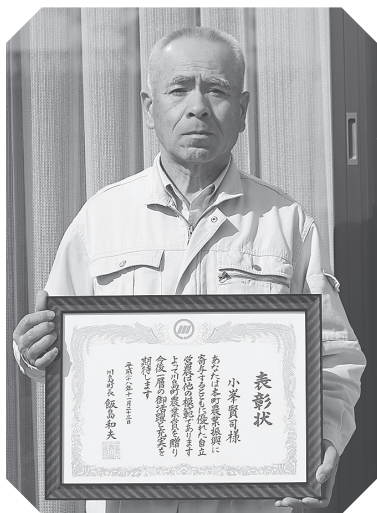 表彰状
小峯賢司様
あなたは本町農業振興に
寄与するとともに優れた自立
営農は他の模範であります
よって川島町農業賞を贈り
今後一層の御活躍と充実を
期待します
平成二十八年十一月二十三日
川島町長 飯島和夫